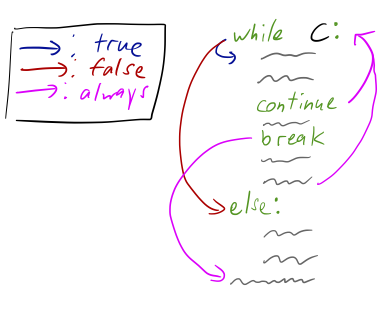 : true
: false
: always
while C:
continue
break
else: